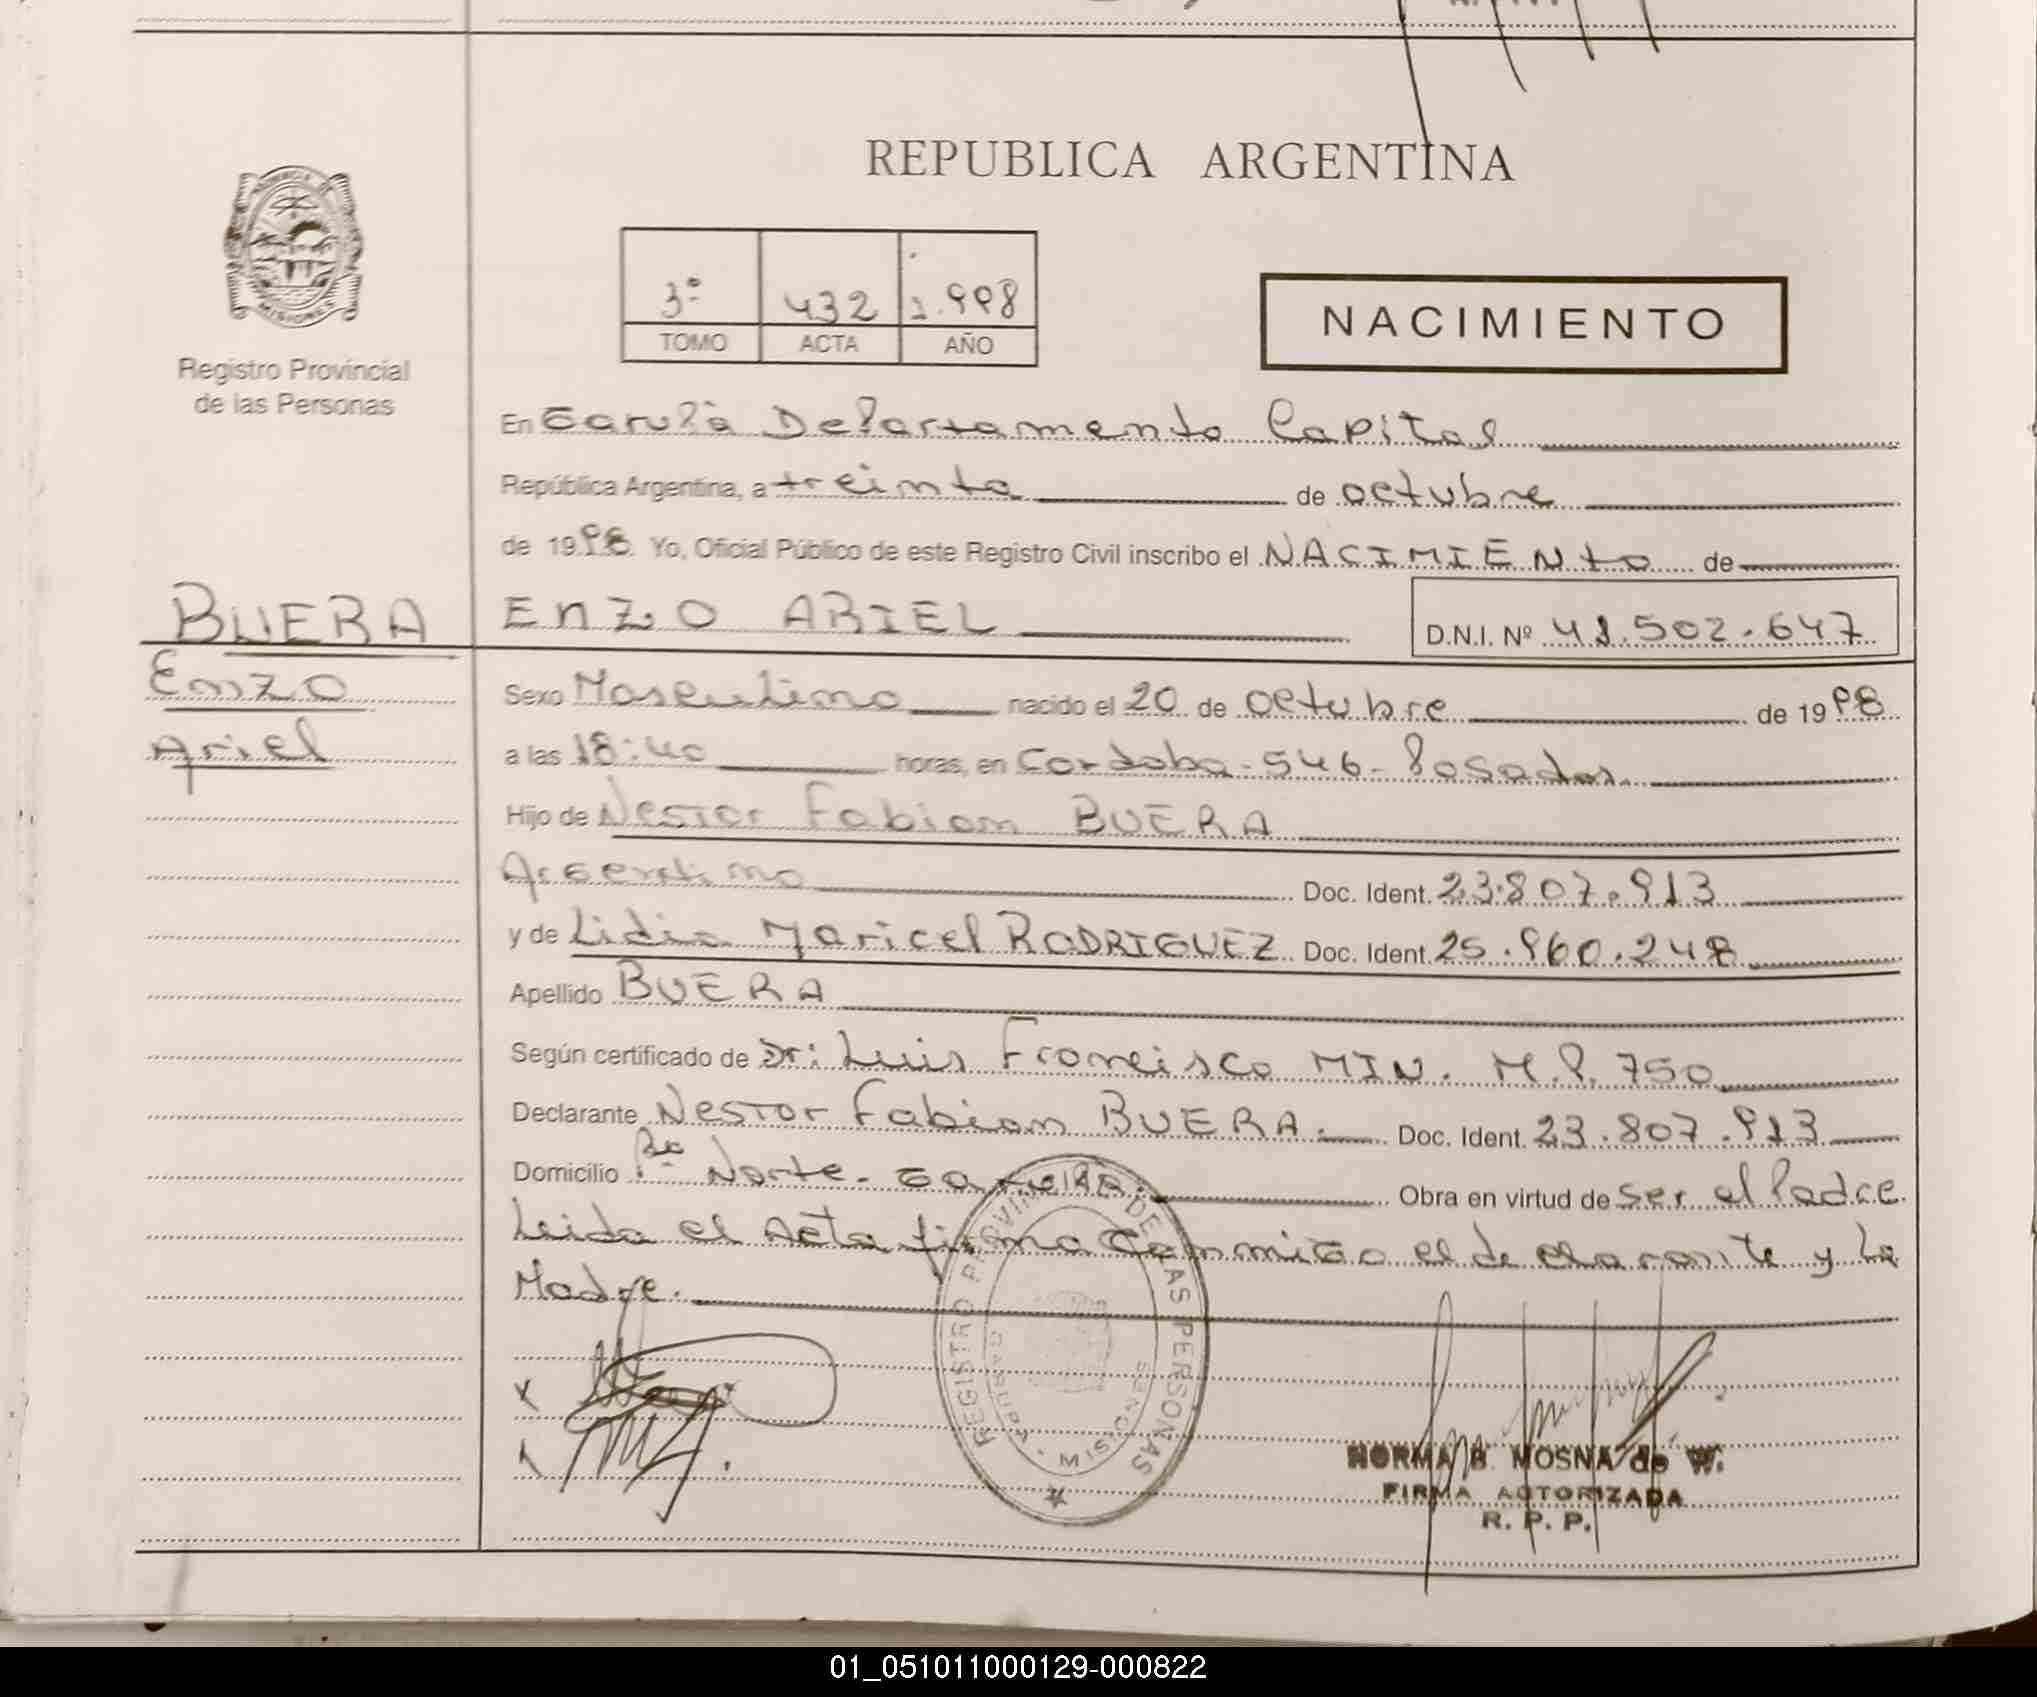 REPUBLICA ARGENTINA
PROVINCIA DE MISIONES
Registro Provincial
de las Personas
3º 432 1.998
TOMO ACTA AÑO
NACIMIENTO
En Garupá Departamento Capital
República Argentina, a treinta de octubre
de 1998 Yo, Oficial Público de este Registro Civil inscribo el NACIMIENto de
BUERA ENZO ARIEL D.N.I. Nº 41.502.647
Enzo
Ariel
Sexo Masculino nacido el 20 de octubre de 1998
a las 18:40 horas, en Cordoba-546-Posadas.
Hijo de Nestor Fabian BUERA
Argentino Doc. Ident. 23.807.913
y de Lidia Maricel RODRIGUEZ Doc. Ident. 25.960.248
Apellido BUERA
Según certificado de Dr: Luis Francisco MIN. M.P. 750
Declarante Nestor Fabian BUERA. Doc. Ident. 23.807.913
Domicilio Bº Norte-Garupá. Obra en virtud de ser el Padre
Leida el Acta firma conmigo el declarante y la
Madre.
REGISTRO PROVINCIAL DE LAS PERSONAS
GARUPA - MISIONES
NORMA B. MOSNA de W.
FIRMA AUTORIZADA
R. P. P.
01_051011000129-000822